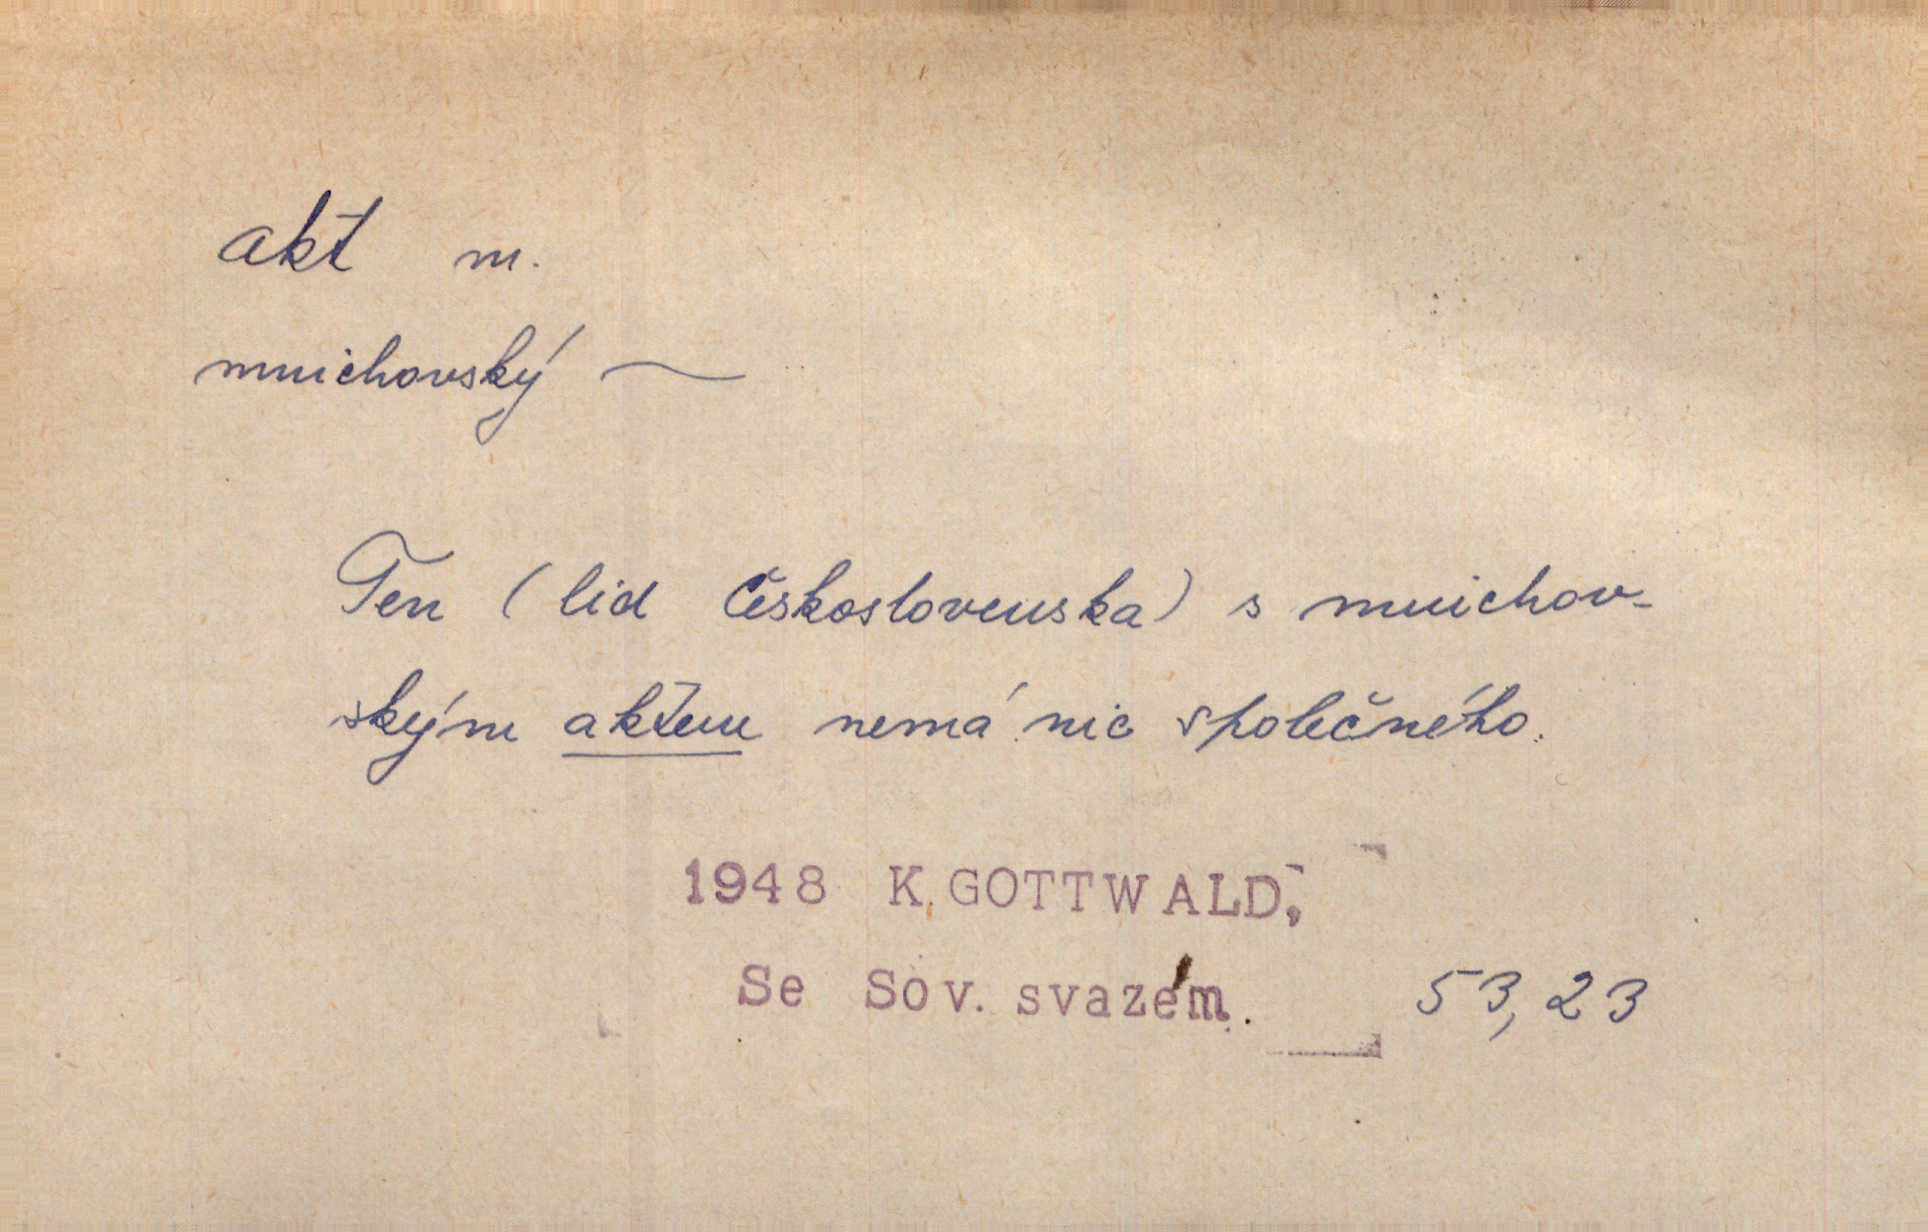 akt m.
mnichovský ~
Ten (lid Československa) s mnichov-
ským aktem nemá nic společného.
1948 K. GOTTWALD,
Se Sov. svazem. 53, 23